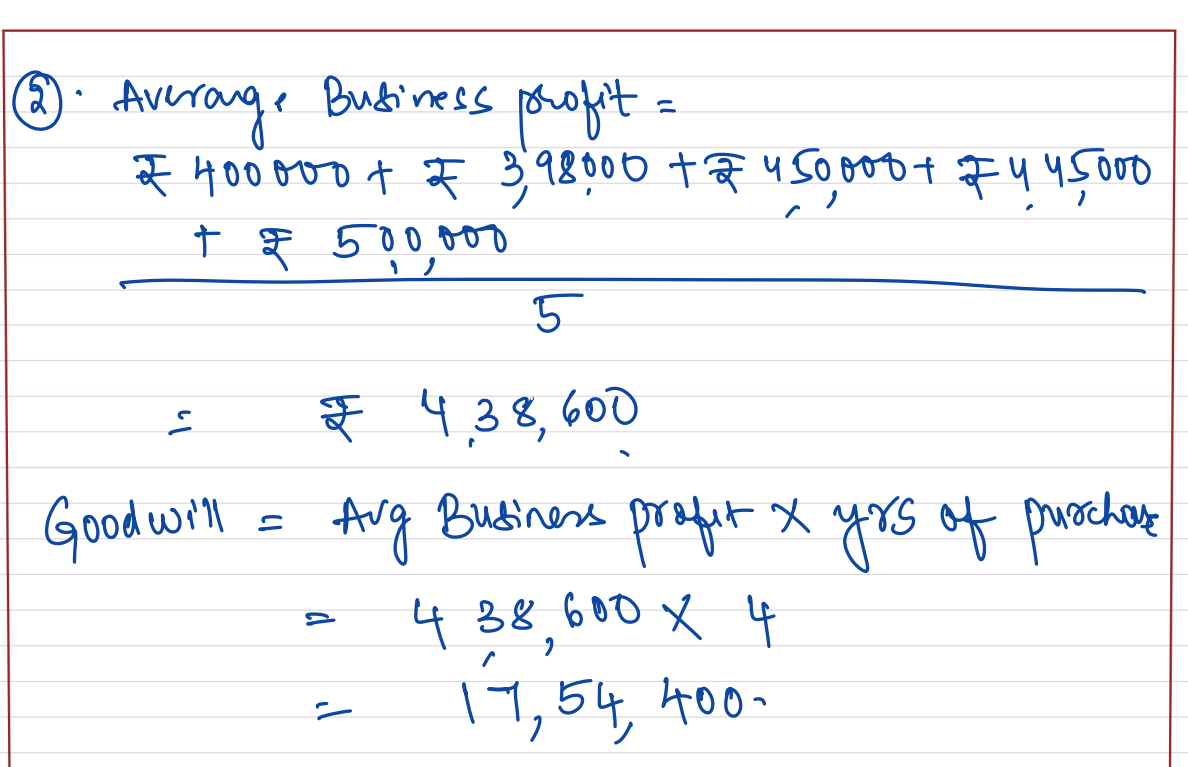 ②. Average Business profit =
₹ 400000 + ₹ 3,98,000 + ₹ 4,50,000 + ₹ 4,45,000
+ ₹ 5,00,000
5
= ₹ 4,38,600
Goodwill = Avg Business profit X yrs of purchase
= 4,38,600 X 4
= 17,54,400.